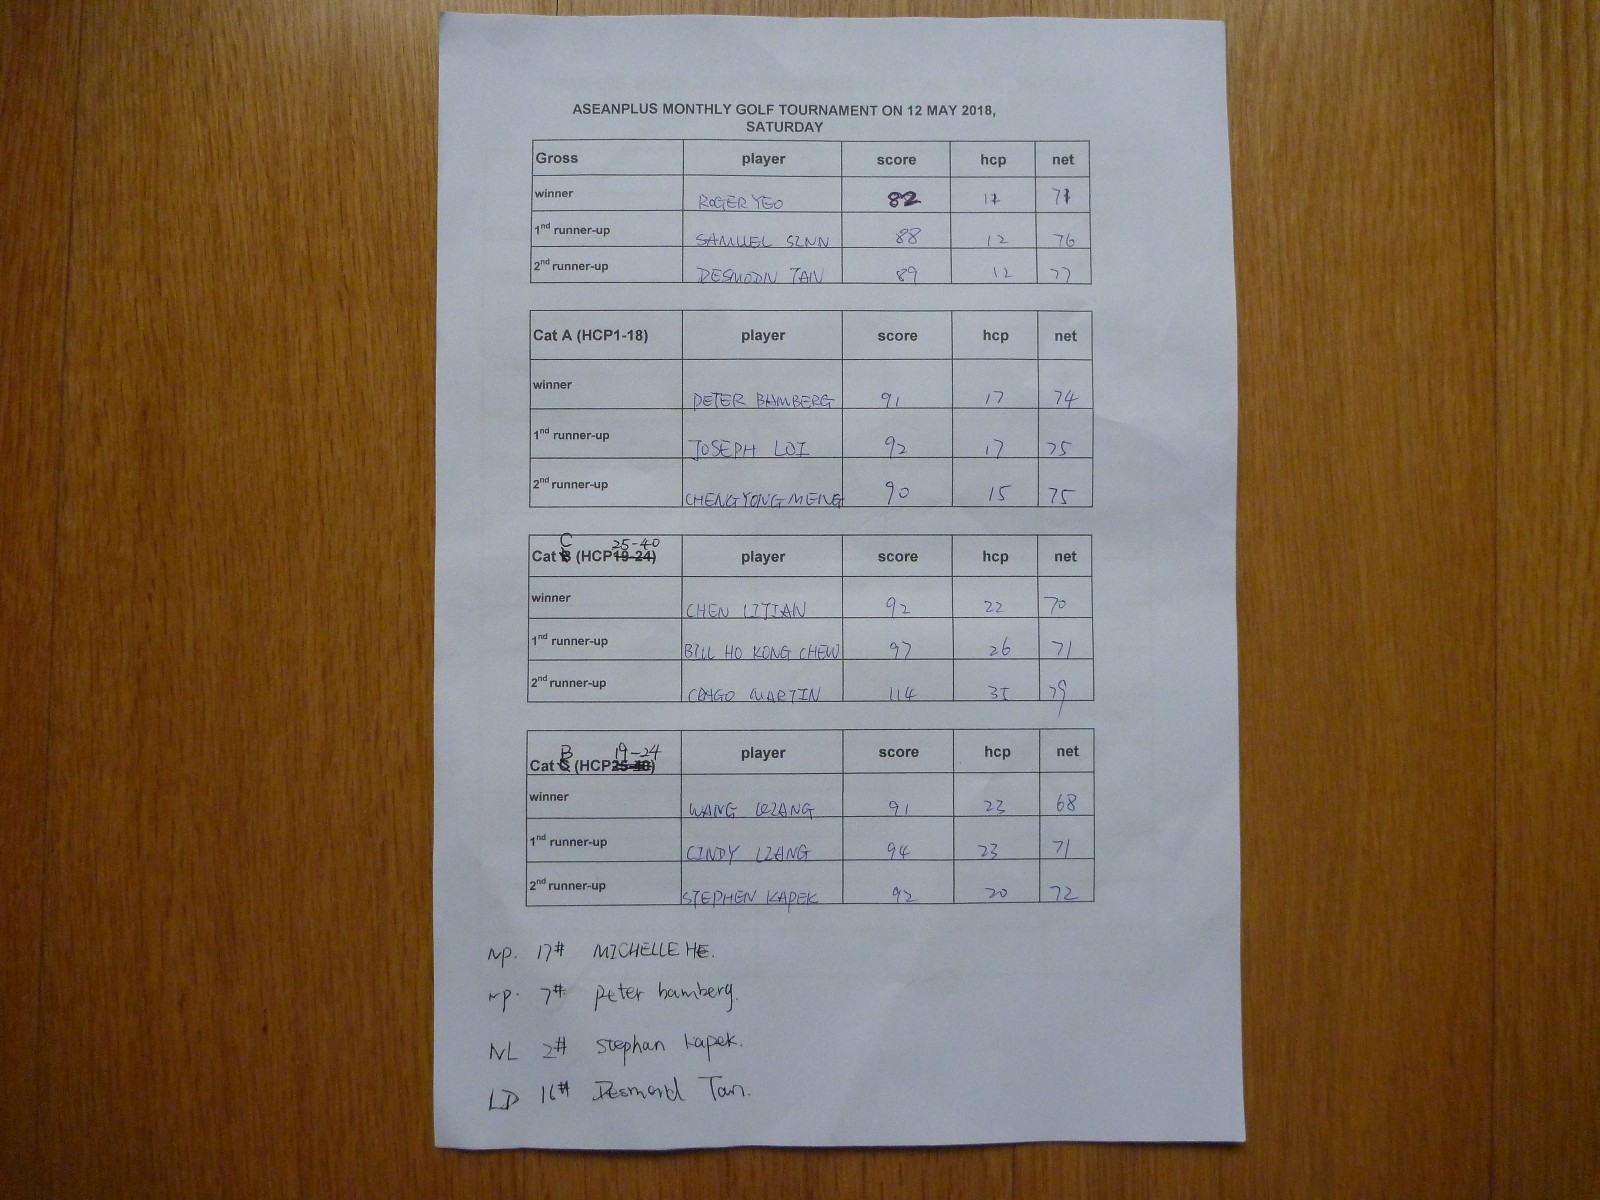 ASEANPLUS MONTHLY GOLF TOURNAMENT ON 12 MAY 2018,
SATURDAY
Gross player score hcp net
winner ROGER YEO 82 11 71
1nd runner-up SAMUEL SINN 88 12 76
2nd runner-up DESMODN TAN 89 12 77
Cat A (HCP1-18) player score hcp net
winner PETER BAMBERG 91 17 74
1nd runner-up JOSEPH LOI 92 17 75
2nd runner-up CHENGYONGMENG 90 15 75
C 25-40
Cat B (HCP19-24) player score hcp net
winner CHEN LITIAN 92 22 70
1nd runner-up BILL HO KONG CHEW 97 26 71
2nd runner-up MARTIN 114 35 79
B 19-24
Cat C (HCP25-40) player score hcp net
winner WANG 91 23 68
1nd runner-up CINDY LIANG 94 23 71
2nd runner-up STEPHEN KAPEK 92 20 72
NP. 17# MICHELLE HE.
NP. 7# Peter bamberg.
NL 2# Stephan kapek.
LD 16# Desmond Tan.